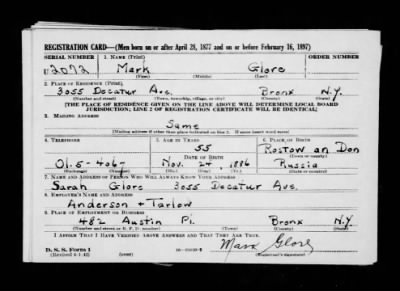 REGISTRATION CARD—(Men born on or after April 28, 1877 and on or before February 16, 1897)
SERIAL NUMBER 1. NAME (Print) ORDER NUMBER
U 2072 Mark Glore
(First) (Middle) (Last)
2. PLACE OF RESIDENCE (Print)
3055 Decatur Ave. Bronx N.Y.
(Number and street) (Town, township, village, or city) (County) (State)
[THE PLACE OF RESIDENCE GIVEN ON THE LINE ABOVE WILL DETERMINE LOCAL BOARD
JURISDICTION; LINE 2 OF REGISTRATION CERTIFICATE WILL BE IDENTICAL]
3. MAILING ADDRESS
Same
(Mailing address if other than place indicated on line 2. If same insert word same)
4. TELEPHONE 5. AGE IN YEARS 6. PLACE OF BIRTH
55 Rostow an Don
DATE OF BIRTH
Ol. 5-4067 Nov. 24 1886 Russia
(Exchange) (Number) (Mo.) (Day) (Yr.) (State or country)
7. NAME AND ADDRESS OF PERSON WHO WILL ALWAYS KNOW YOUR ADDRESS
Sarah Glore 3055 Decatur Ave.
8. EMPLOYER'S NAME AND ADDRESS
Anderson + Tarlow
9. PLACE OF EMPLOYMENT OR BUSINESS
482 Austin Pl. Bronx N.Y.
(Number and street or R. F. D. number) (Town) (County) (State)
I AFFIRM THAT I HAVE VERIFIED ABOVE ANSWERS AND THAT THEY ARE TRUE.
D. S. S. Form 1
(Revised 4-1-42) Mark Glore
(Registrant's signature)